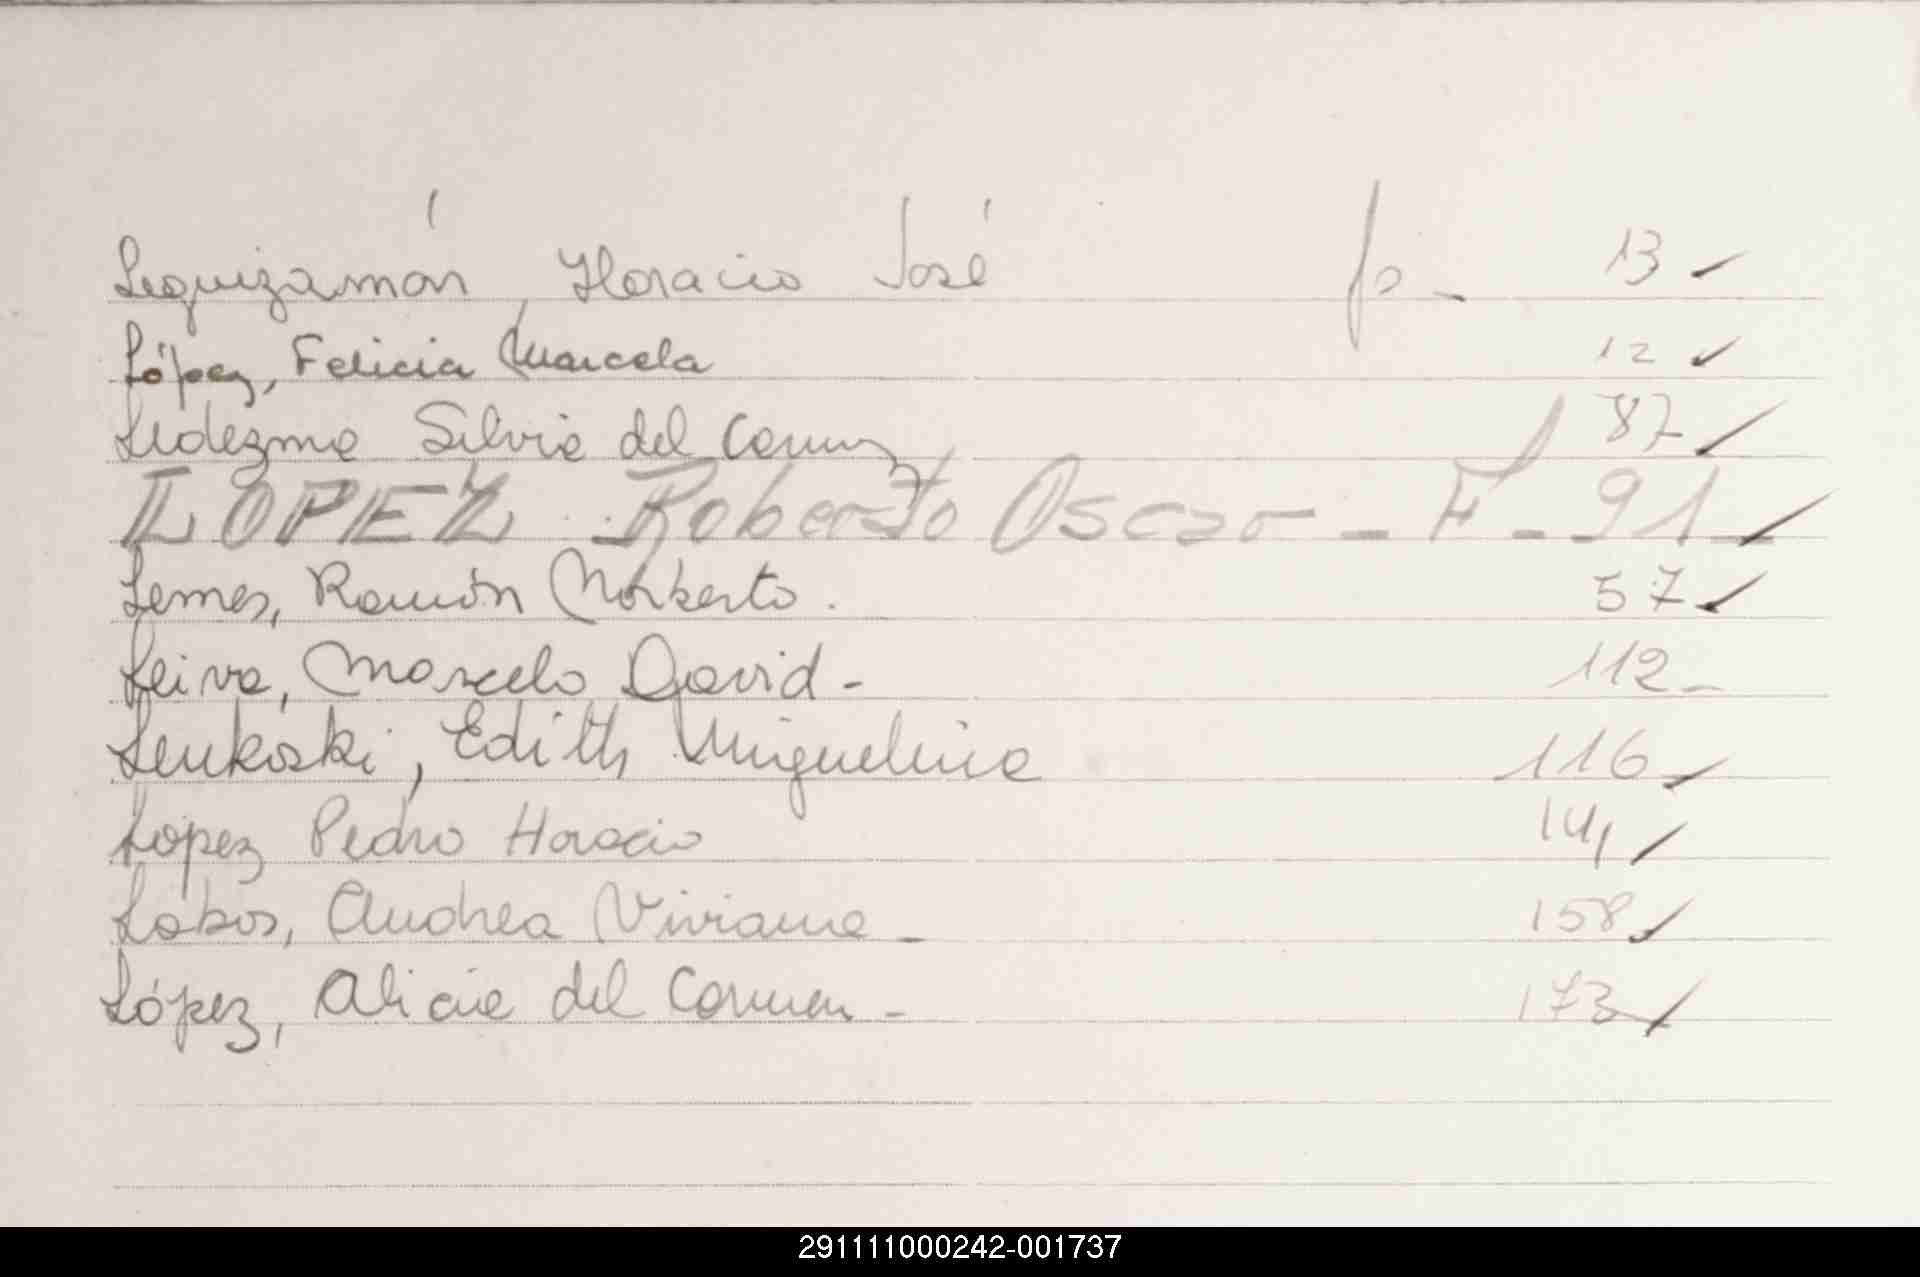 Leguizamón, Horacio José fo - 13
López, Felicia Marcela 12
Ledezma Silvia del Carmen 87
LOPEZ Roberto Oscar - F - 91
Lemes, Ramón Norberto. 57
Leiva, Marcelo David - 112 -
Leukoski, Edith Miguelina 116
Lopez Pedro Horacio 141
Lobos, Andrea Viviana - 158
López, Alicia del Carmen - 173
291111000242-001737